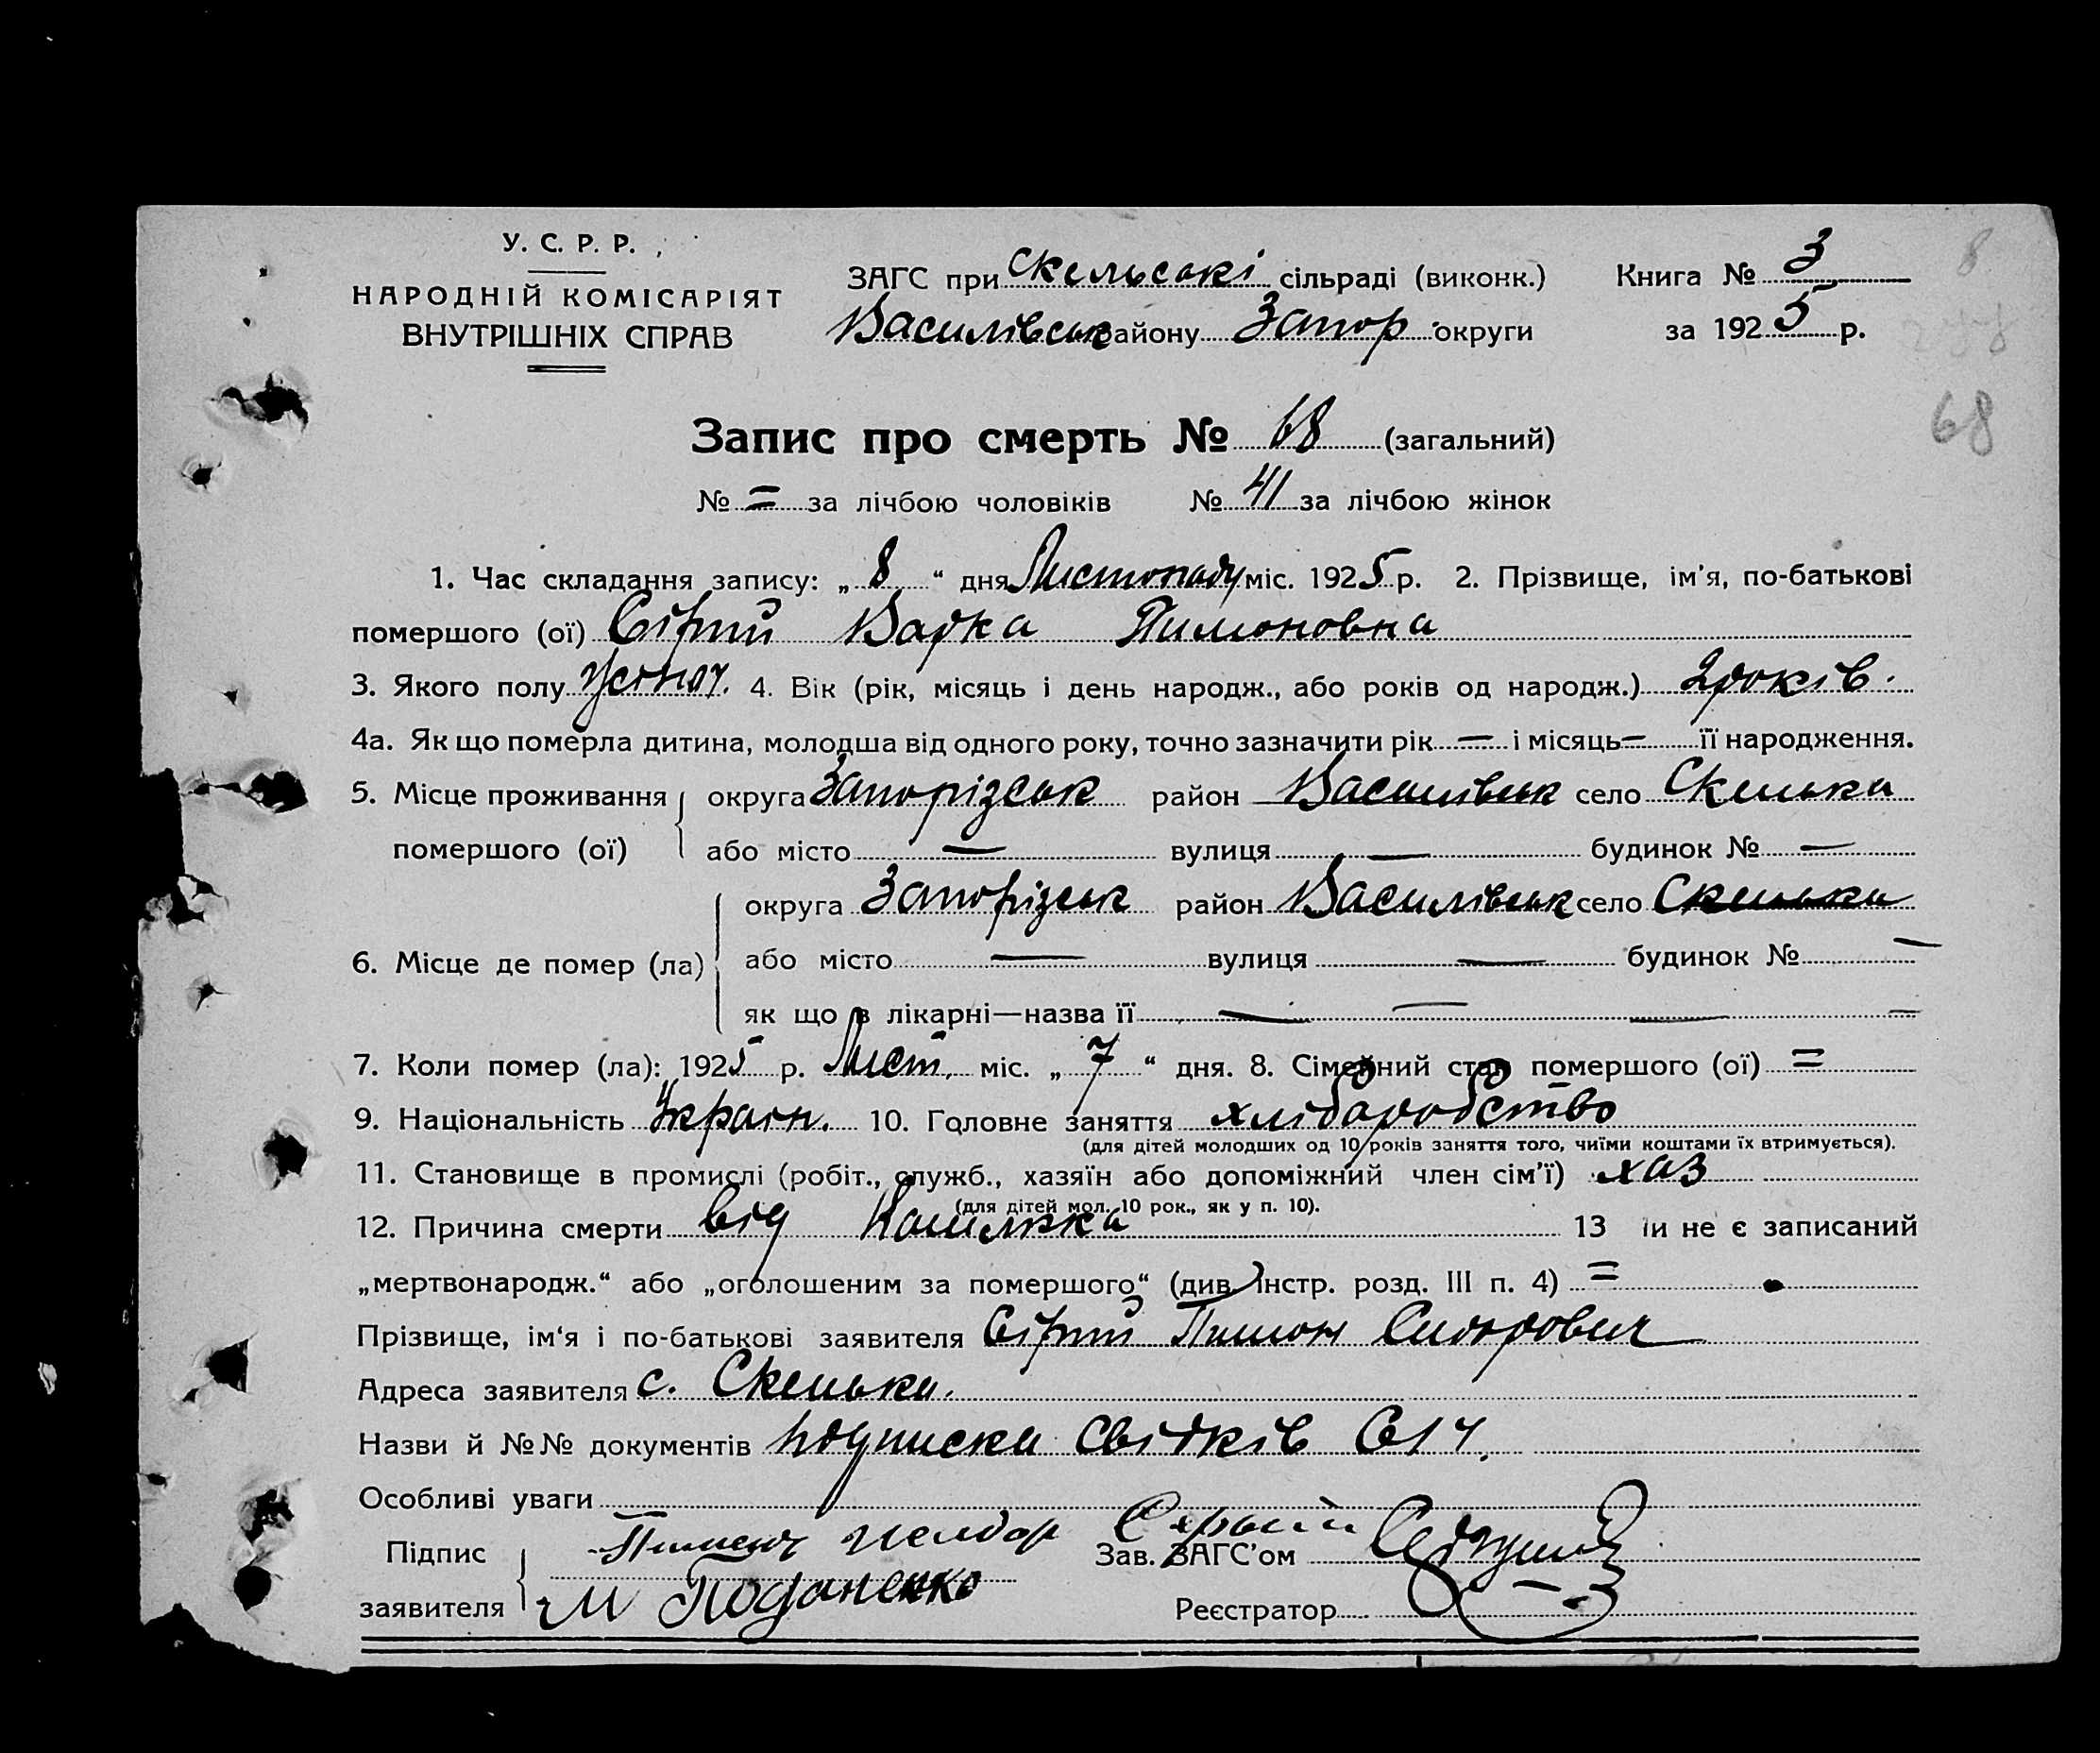 У. С. Р. Р.
НАРОДНІЙ КОМІСАРІЯТ
ВНУТРІШНІХ СПРАВ
ЗАГС при Скельські сільраді (виконк.) Книга № 3
Василівськ району Запор. округи за 1925 р.
8
68
Запис про смерть № 68 (загальний)
№ = за лічбою чоловіків № 41 за лічбою жінок
1. Час складання запису: „ 8 “ дня Листопаду міс. 1925 р. 2. Прізвище, ім'я, по-батькові
помершого (ої) Сірий Варка Пимоновна
3. Якого полу 4. Вік (рік, місяць і день народж., або років од народж.) 2 років.
4а. Як що померла дитина, молодша від одного року, точно зазначити рік — і місяць — її народження.
5. Місце проживання помершого (ої) округа Запорізськ район Василівськ село Скельки
або місто — вулиця — будинок № —
6. Місце де помер (ла) округа Запорізськ район Василівськ село Скельки
або місто — вулиця — будинок № —
як що в лікарні—назва її — — — —
7. Коли помер (ла): 1925 р. Лист. міс. „ 7 “ дня. 8. Сімейний стан помершого (ої) =
9. Національність Україн. 10. Головне заняття хліборобство
(для дітей молодших од 10 років заняття того, чиїми коштами їх втримується).
11. Становище в промислі (робіт., служб., хазяїн або допоміжний член сім'ї) хаз
(для дітей мол. 10 рок., як у п. 10).
12. Причина смерти від Кашлюка 13 и не є записаний
„мертвонародж.“ або „оголошеним за помершого“ (див. Інстр. розд. III п. 4) =
Прізвище, ім‘я і по-батькові заявителя Сірий Пимон Сидорович
Адреса заявителя с. Скельки.
Назви й №№ документів подписка свідків
Особливі уваги
Підпис заявителя Пимон Сірый
Зав. ЗАГС'ом
Реєстратор